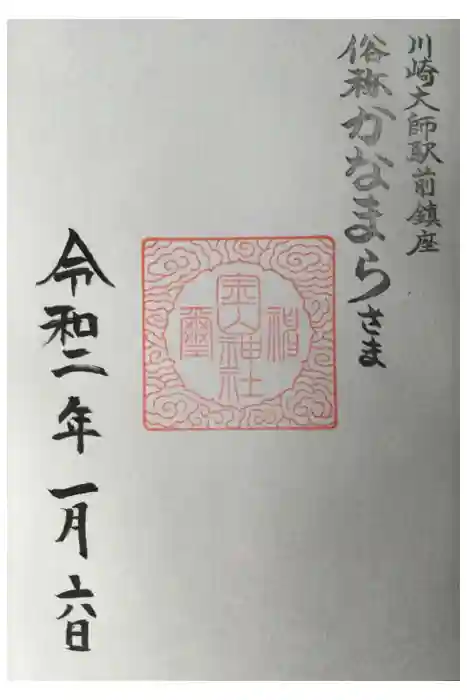 川崎大師駅前鎮座
俗称かなまらさま
金山神社
令和二年一月六日